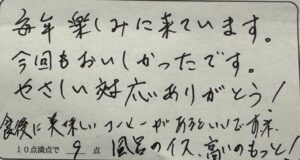 毎年楽しみに来ています。
今回もおいしかったです。
やさしい対応ありがとう！
食後に美味しいコーヒーがあるといいです。
10点満点で 9 点 風呂のイス、高いのもっと！